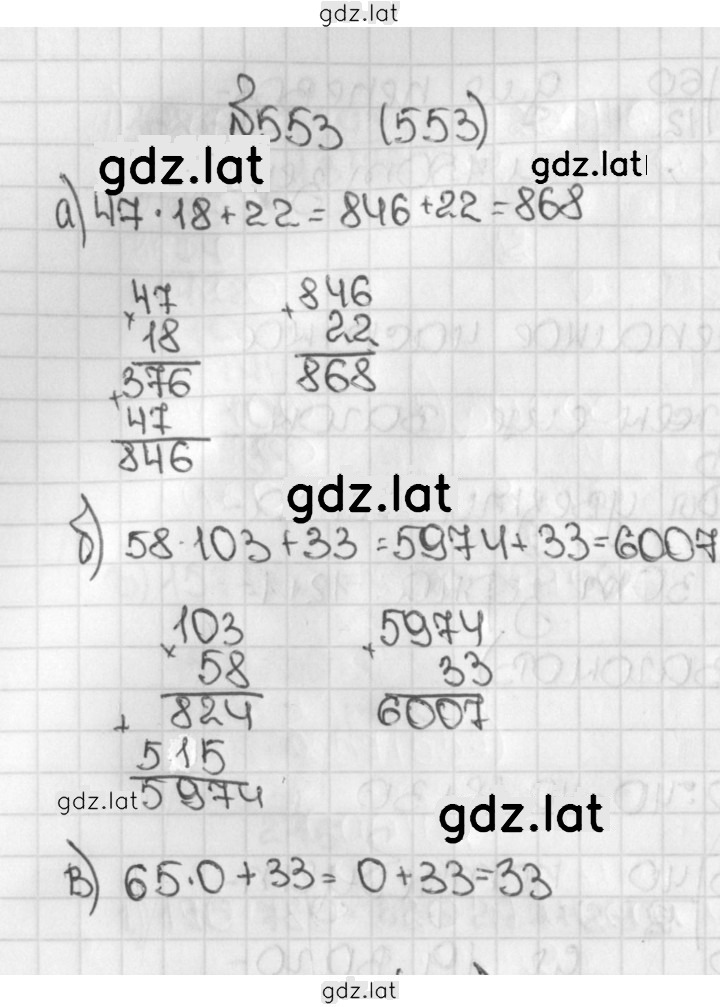 gdz.lat
№553 (553)
gdz.lat gdz.lat
а) 47·18+22=846+22=868
47 846
× 18 + 22
376 868
+ 47
846
gdz.lat
б) 58·103+33=5974+33=6007
103 5974
× 58 + 33
824 6007
+ 515
gdz.lat 5974
gdz.lat
в) 65·0+33=0+33=33
gdz.lat